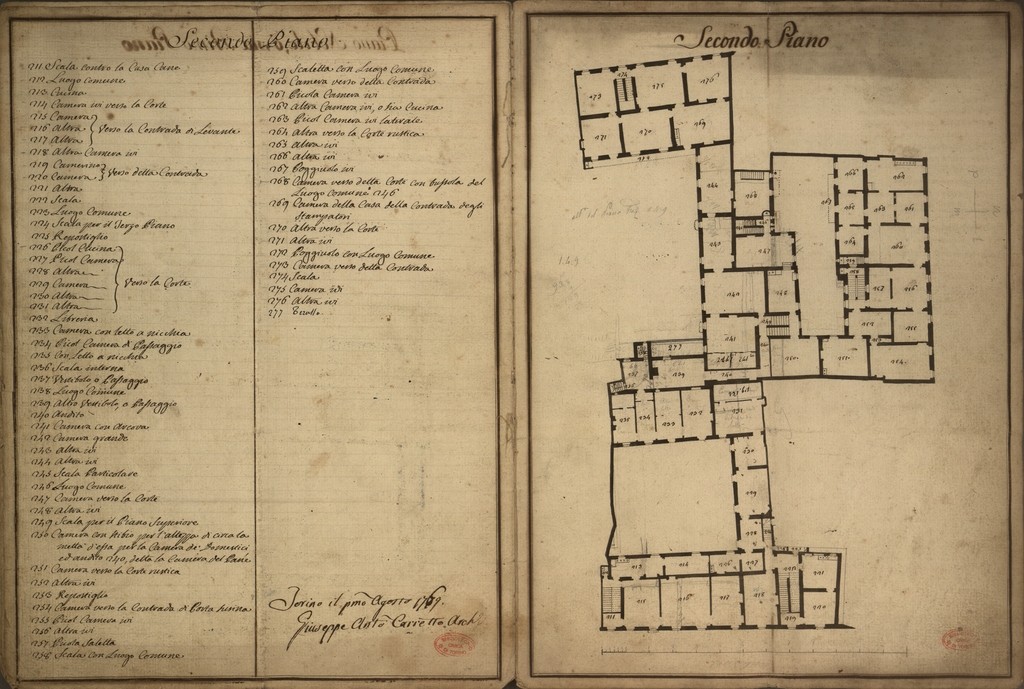 Secondo Piano
211 Scala contro la Casa Cane
212 Luogo comune
213 Cucina
214 Camera ivi verso la Corte
215 Camera
216 Altra
217 Altra
verso la Contrada di Levante
218 Altra Camera ivi
219 Camerino
220 Camera
verso della Contrada
221 Altra
222 Scala
223 Luogo Comune
224 Scala per il Terzo Piano
225 Repostiglio
226 Picol Cucina
227 Picol Camera
228 Altra
229 Camera
230 Altra
231 Altra
verso la Corte
232 Libreria
233 Camera con letto a nicchia
234 Picol Camera di Passaggio
235 Con Letto a nicchia
236 Scala interna
237 Vestibolo, o Passaggio
238 Luogo Comune
239 Altro Vestibolo, o Passaggio
240 Andito
241 Camera con Arcova
242 Camera grande
243 Altra ivi
244 Altra ivi
245 Scala Particolare
246 Luogo Comune
247 Camera verso la Corte
248 Altra ivi
249 Scala per il Piano Superiore
250 Camera con per l'altezza di circa la
metà d'essa per la Camera de' Domestici
ed andito 240, detta la Camera del Pane
251 Camera verso la Corte rustica
252 Altra ivi
253 Repostiglio
254 Camera verso la Contrada di Porta Susina
255 Picol Camera ivi
256 Altra ivi
257 Picola Saletta
258 Scala con Luogo Comune
259 Scaletta con Luogo Comune
260 Camera verso della Contrada
261 Picola Camera ivi
262 Altra Camera ivi, o sia Cucina
263 Picol Camera ivi laterale
264 Altra verso la Corte rustica
265 Altra ivi
266 Altra ivi
267 Poggiuolo ivi
268 Camera verso della Corte con bussola del
Luogo Comune 246
269 Camera della Casa della Contrada degli
Stampatori
270 Altra verso la Corte
271 Altra ivi
272 Poggiuolo con Luogo Comune
273 Camera verso della Contrada
274 Scala
275 Camera ivi
276 Altra ivi
277
Torino il pmo Agosto 1769.
Giuseppe Anto Carretto Arch
Secondo Piano
273
274
275
276
271
270
269
272
244
268
243
247
242
248
241
277
239
240
250
251
252
254
232
231
230
229
228
213
214
215
216
217
218
211
219
220
221